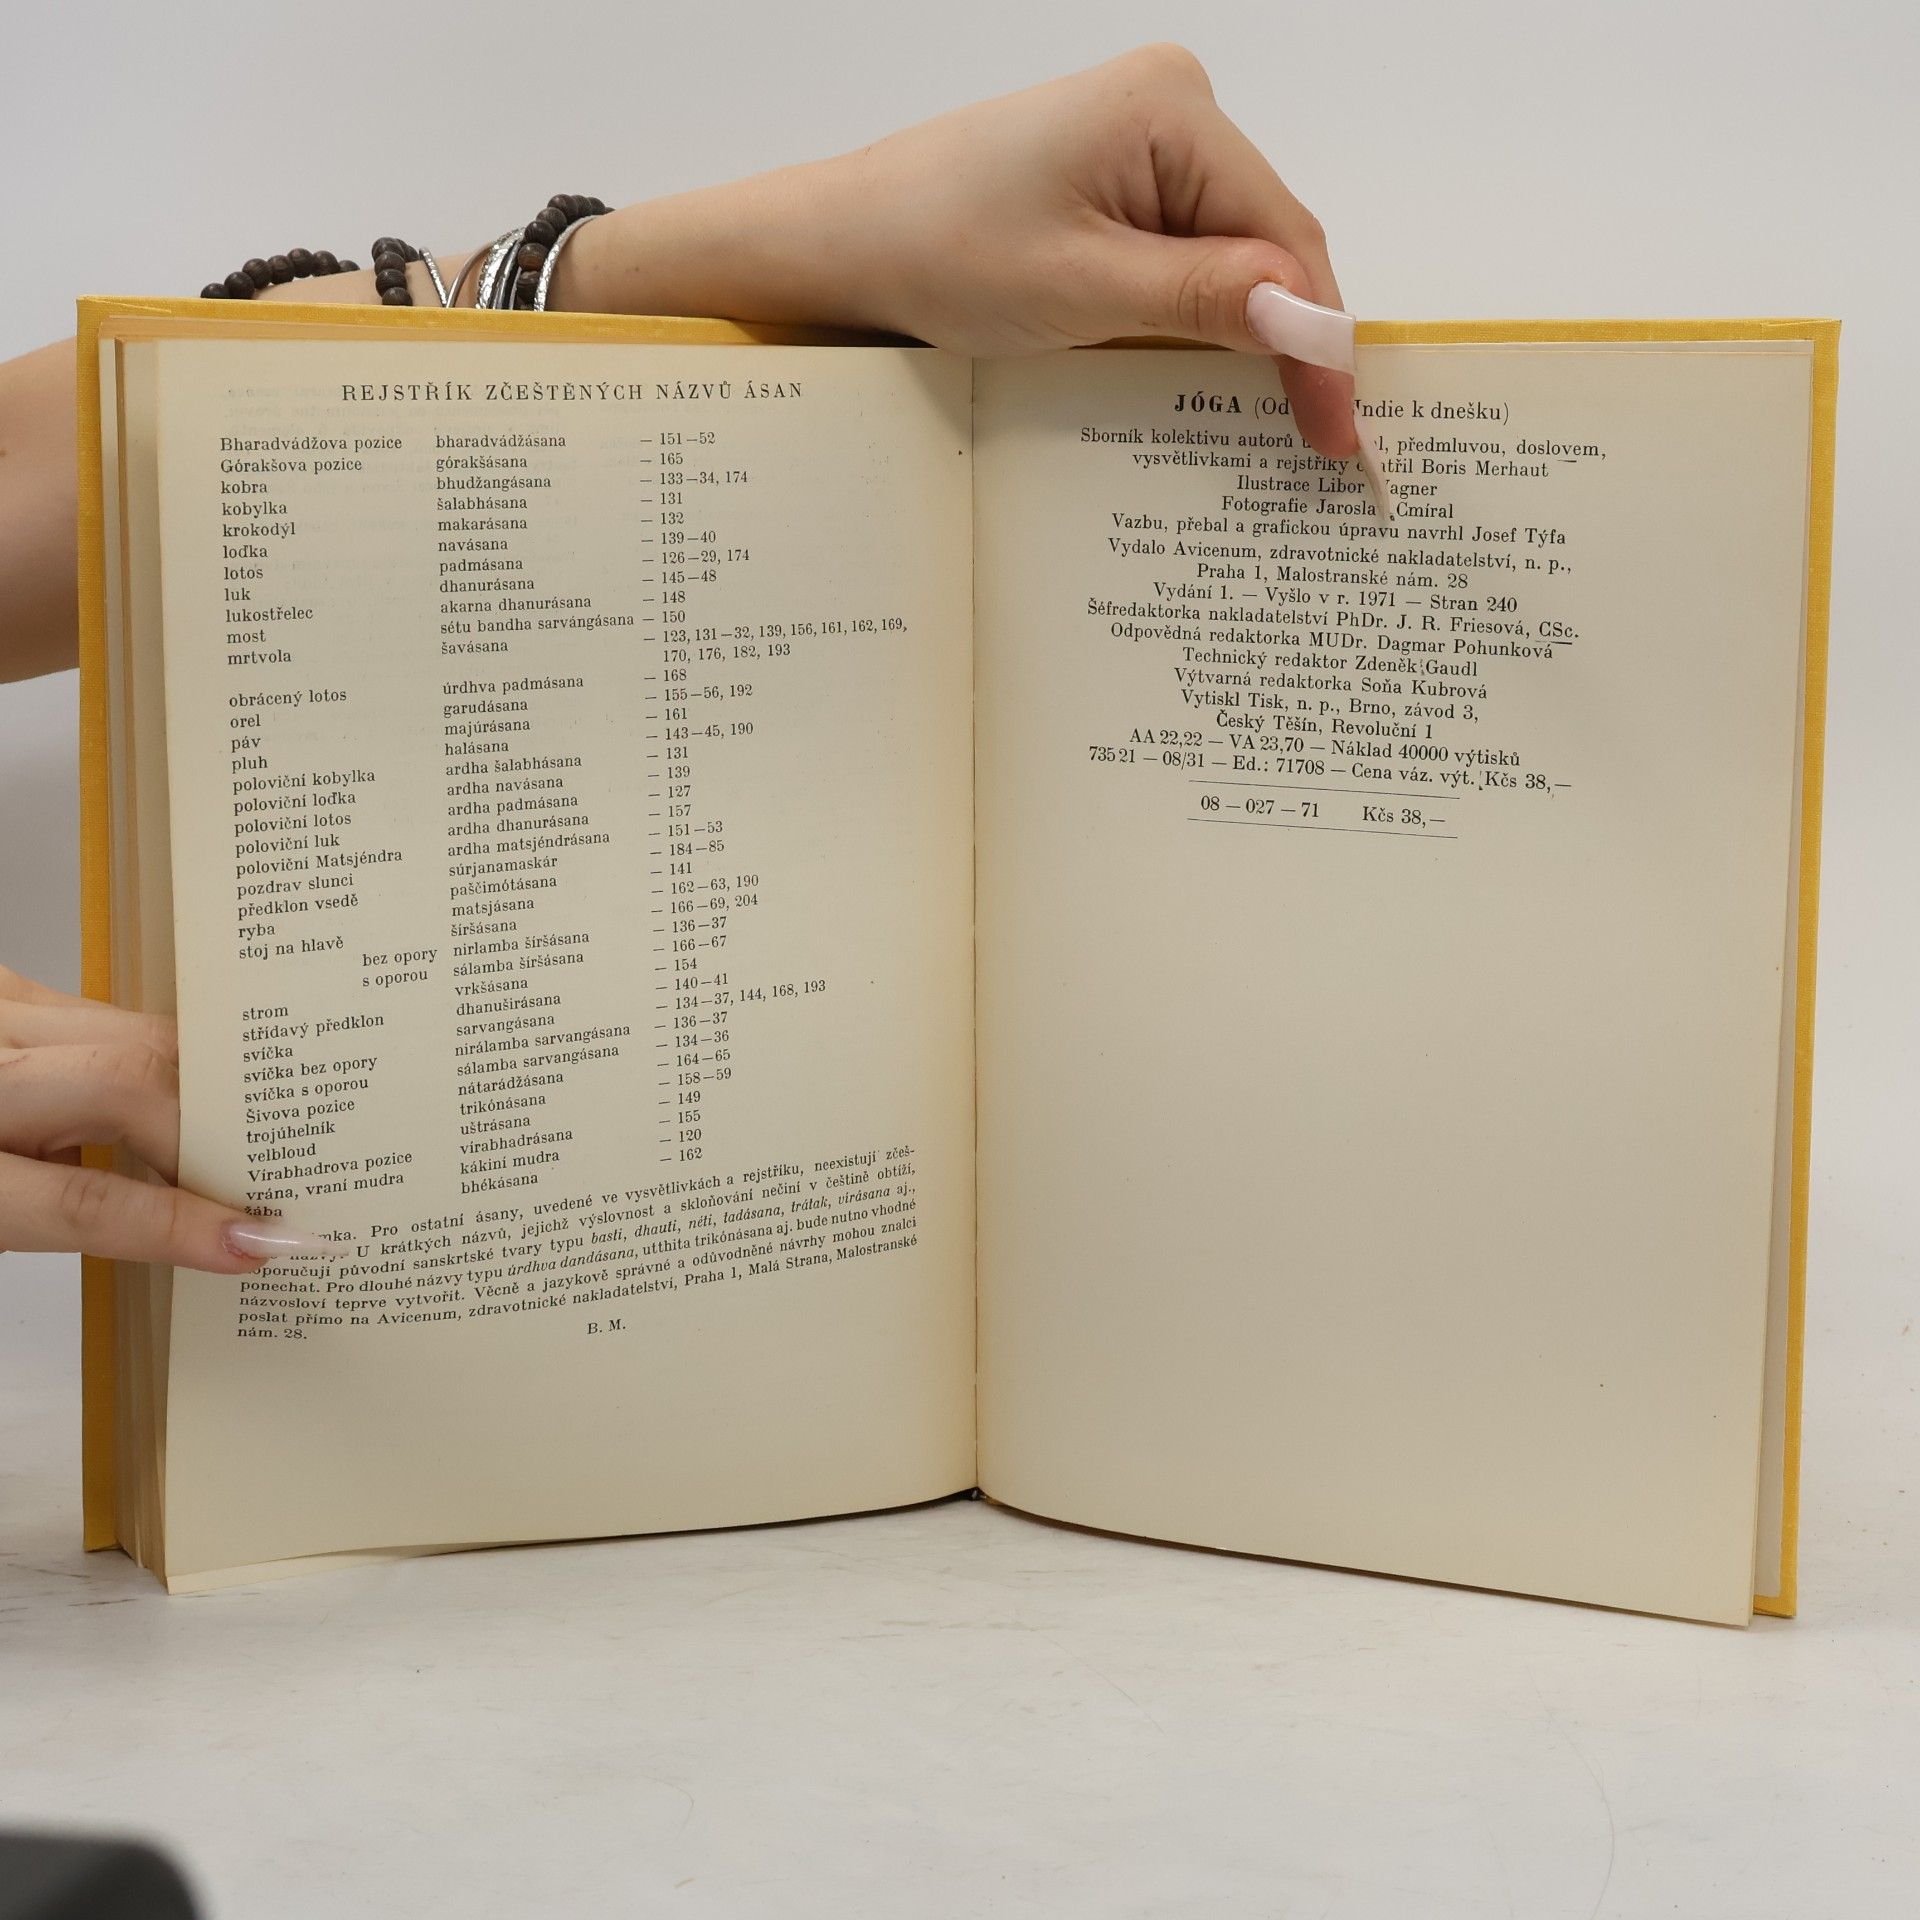 REJSTŘÍK ZČEŠTĚNÝCH NÁZVŮ ÁSAN
Bharadvádžova pozice bharadvádžásana — 151—52
Górakšova pozice górakšásana — 165
kobra bhudžangásana — 133—34, 174
kobylka šalabhásana — 131
krokodýl makarásana — 132
loďka navásana — 139—40
lotos padmásana — 126—29, 174
luk dhanurásana — 145—48
lukostřelec akarna dhanurásana — 148
most sétu bandha sarvángásana — 150
mrtvola šavásana — 123, 131—32, 139, 156, 161, 162, 169,
170, 176, 182, 193
obrácený lotos úrdhva padmásana — 168
orel garudásana — 155—56, 192
páv majúrásana — 161
pluh halásana — 143—45, 190
poloviční kobylka ardha šalabhásana — 131
poloviční loďka ardha navásana — 139
poloviční lotos ardha padmásana — 127
poloviční luk ardha dhanurásana — 157
poloviční Matsjéndra ardha matsjéndrásana — 151—53
pozdrav slunci súrjanamaskár — 184—85
předklon vsedě paščimótásana — 141
ryba matsjásana — 162—63, 190
stoj na hlavě šíršásana — 166—69, 204
bez opory nirlamba šíršásana — 136—37
s oporou sálamba šíršásana — 166—67
strom vrkšásana — 154
střídavý předklon dhanuširásana — 140—41
svíčka sarvangásana — 134—37, 144, 168, 193
svíčka bez opory nirálamba sarvangásana — 136—37
svíčka s oporou sálamba sarvangásana — 134—36
Šivova pozice nátarádžásana — 164—65
trojúhelník trikónásana — 158—59
velbloud uštrásana — 149
Vírabhadrova pozice vírabhadrásana — 155
vrána, vraní mudra kákiní mudra — 120
žába bhékásana — 162
Pro ostatní ásany, uvedené ve vysvětlivkách a rejstříku, neexistují zčeš-
U krátkých názvů, jejichž výslovnost a skloňování nečiní v češtině obtíží,
doporučují původní sanskrtské tvary typu basti, dhauti, néti, tadásana, trátak, vírásana aj.,
ponechat. Pro dlouhé názvy typu úrdhva dandásana, utthita trikónásana aj. bude nutno vhodné
názvosloví teprve vytvořit. Věcně a jazykově správné a odůvodněné návrhy mohou znalci
poslat přímo na Avicenum, zdravotnické nakladatelství, Praha 1, Malá Strana, Malostranské
nám. 28.
B. M.
JÓGA (Od Indie k dnešku)
Sborník kolektivu autorů předmluvou, doslovem,
vysvětlivkami a rejstříky opatřil Boris Merhaut
Ilustrace Libor Wagner
Fotografie Jaroslav Čmíral
Vazbu, přebal a grafickou úpravu navrhl Josef Týfa
Vydalo Avicenum, zdravotnické nakladatelství, n. p.,
Praha 1, Malostranské nám. 28
Vydání 1. — Vyšlo v r. 1971 — Stran 240
Šéfredaktorka nakladatelství PhDr. J. R. Friesová, CSc.
Odpovědná redaktorka MUDr. Dagmar Pohunková
Technický redaktor Zdeněk Gaudl
Výtvarná redaktorka Soňa Kubrová
Vytiskl Tisk, n. p., Brno, závod 3,
Český Těšín, Revoluční 1
AA 22,22 — VA 23,70 — Náklad 40000 výtisků
735 21 — 08/31 — Ed.: 71708 — Cena váz. výt. Kčs 38,—
08 — 027 — 71 Kčs 38,—